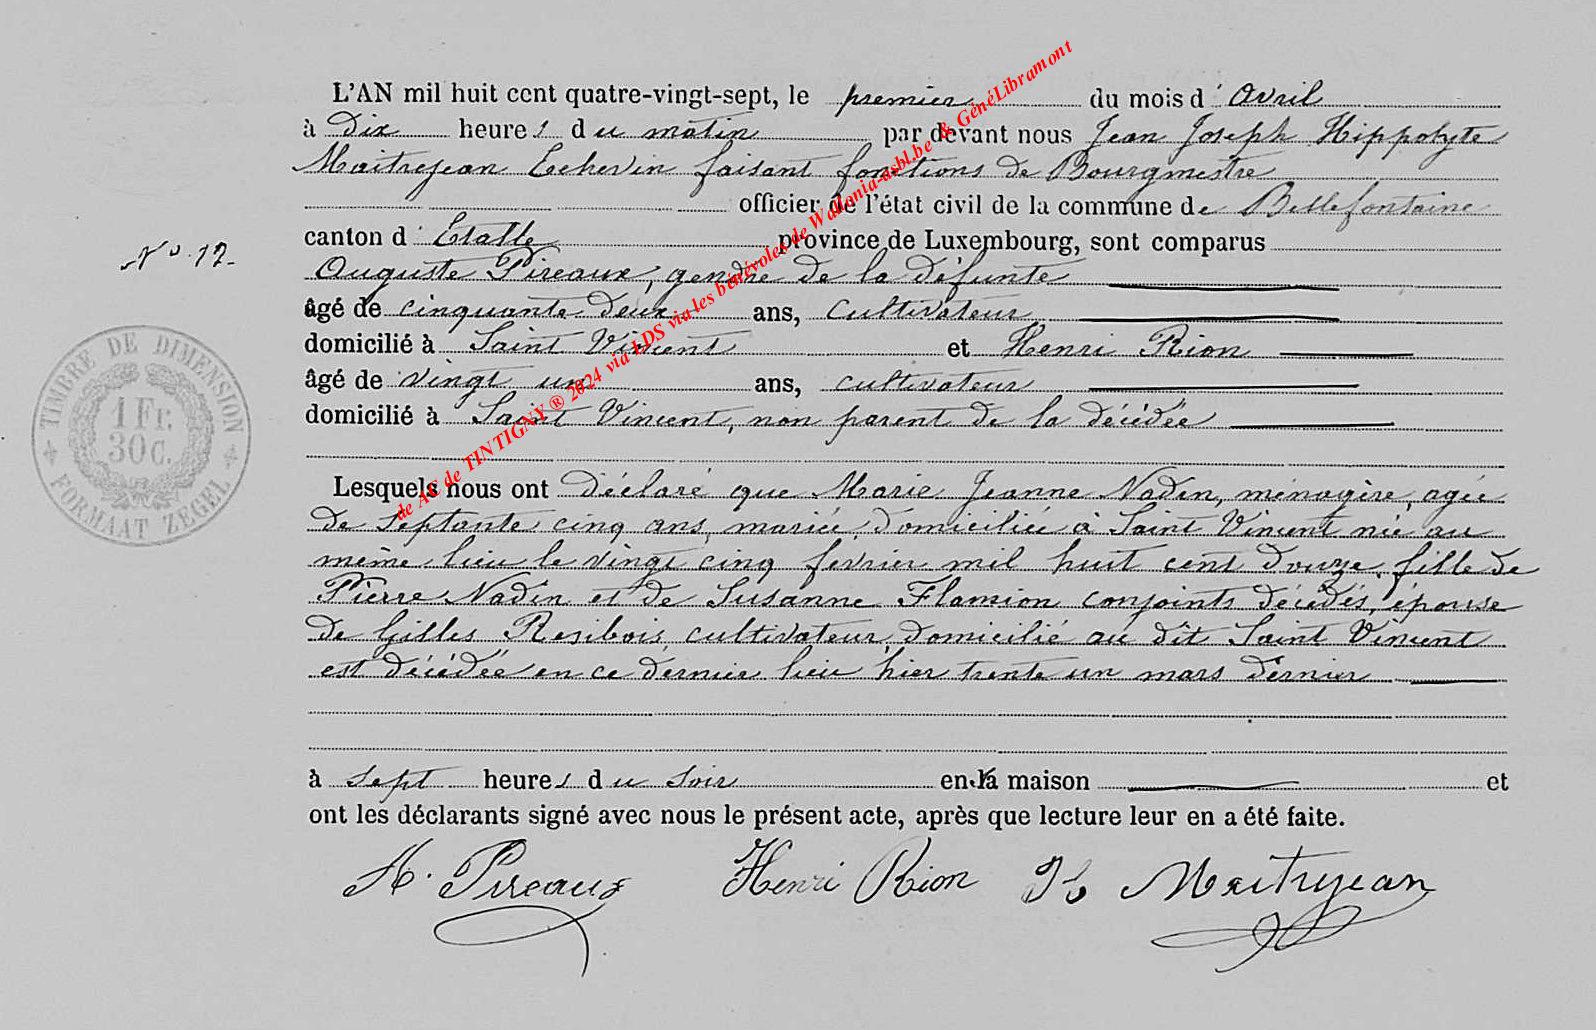 L'AN mil huit cent quatre-vingt-sept, le premier du mois d'Avril
à dix heures du matin par devant nous Jean Joseph Hippolyte
Maitrejean Echevin faisant fonctions de Bourgmestre
officier de l'état civil de la commune de Bellefontaine
canton d'Etalle province de Luxembourg, sont comparus
N° 12.
Auguste Pireaux, gendre de la défunte
âgé de cinquante deux ans, cultivateur
domicilié à Saint Vincent et Henri Rion
âgé de vingt un ans, cultivateur
domicilié à Saint Vincent, non parent de la décédée
TIMBRE DE DIMENSION
1 Fr.
30 C.
FORMAAT ZEGEL
Lesquels nous ont déclaré que Marie Jeanne Nadin, ménagère, agée
de septante cinq ans, mariée, domiciliée à Saint Vincent née au
même lieu le vingt cinq fevrier mil huit cent douze, fille de
Pierre Nadin et de Susanne Flamion conjoints décédés, épouse
de Gilles Resibois, cultivateur, domicilié au dit Saint Vincent
est décédée en ce dernier lieu hier trente un mars dernier
à sept heures du soir en la maison et
ont les déclarants signé avec nous le présent acte, après que lecture leur en a été faite.
A. Pireaux Henri Rion H Maitrejean
de AC de TINTIGNY ® 2024 via LDS via les bénévoles de Wallonia-asbl.be & GénéLibramont